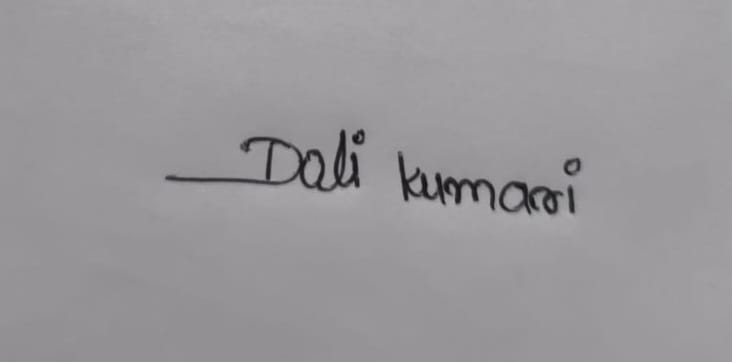 Dali kumari